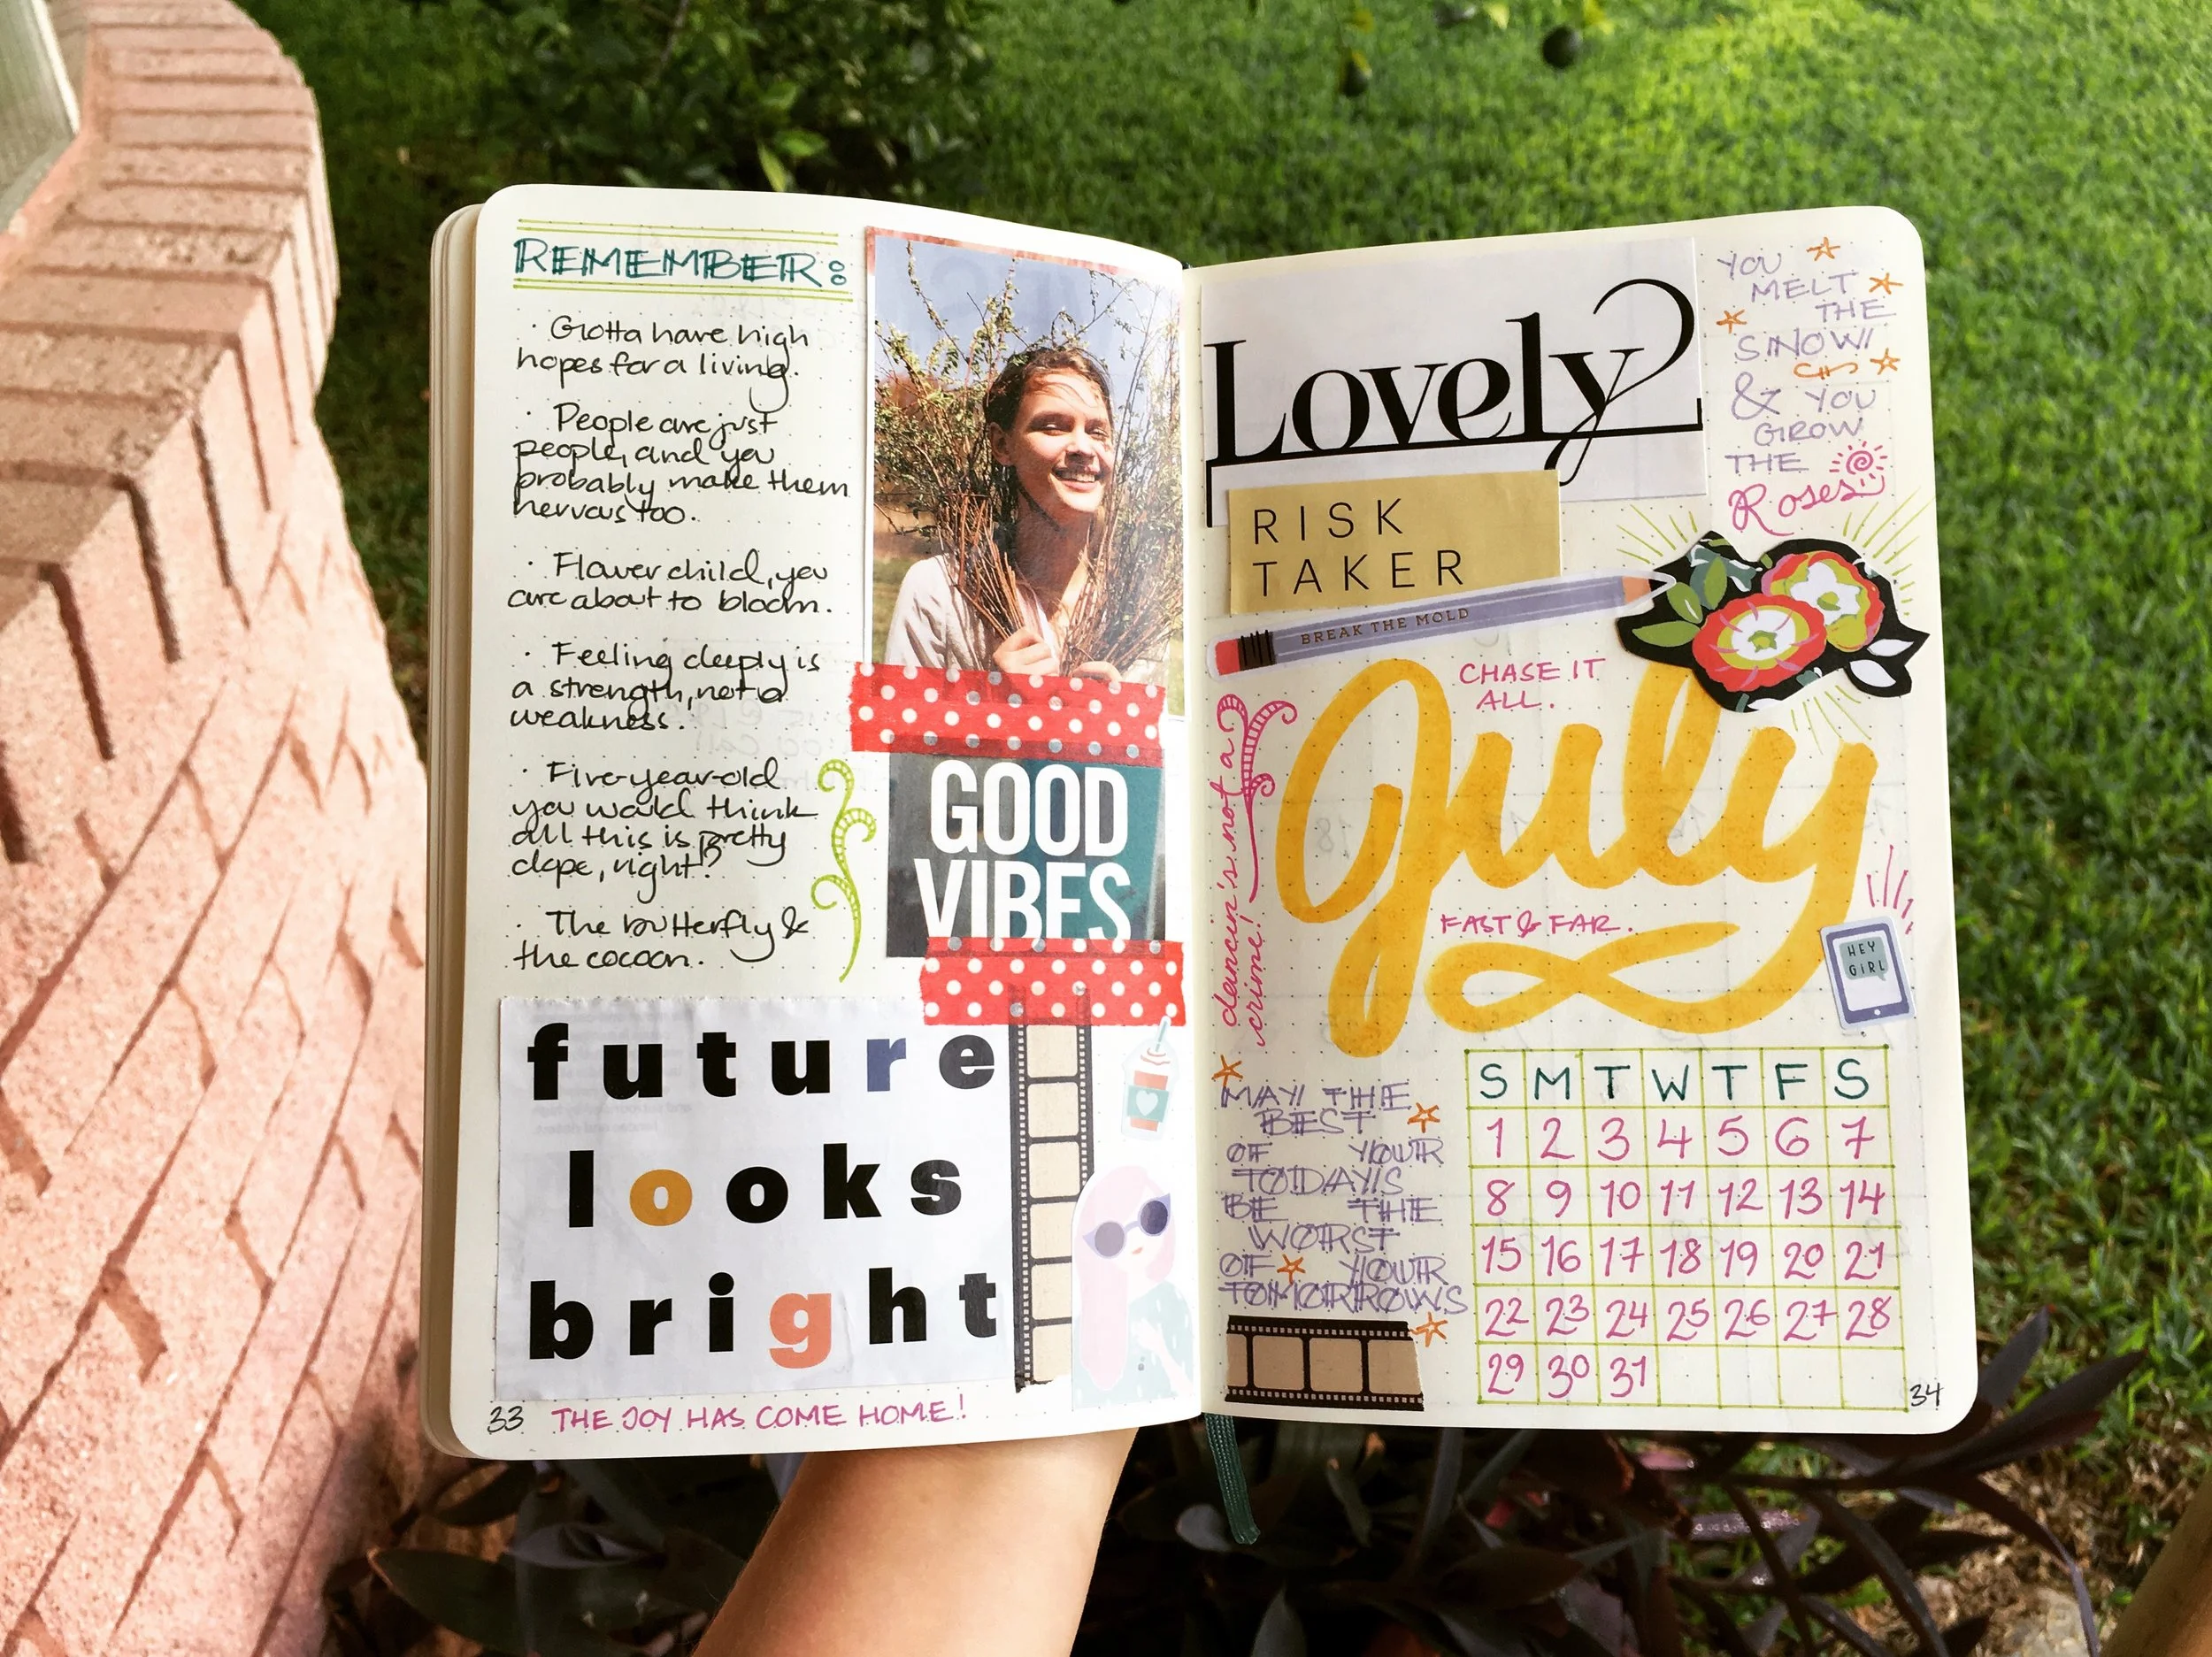 REMEMBER:
· Gotta have high
hopes for a living.
· People are just
people, and you
probably make them
nervous too.
· Flower child, you
are about to bloom.
· Feeling deeply is
a strength, not a
weakness.
· Five-year-old
you would think
all this is pretty
dope, right!?
· The butterfly &
the cocoon.
GOOD
VIBES
future
looks
bright
33
THE JOY HAS COME HOME!
Lovely
YOU
MELT
THE
SNOW
& YOU
GROW
THE
Roses
RISK
TAKER
BREAK THE MOLD
CHASE IT
ALL.
July
FAST & FAR.
dancin's not a
crime!
HEY
GIRL
MAY THE
BEST
OF YOUR
TODAYS
BE THE
WORST
OF YOUR
TOMORROWS
S M T W T F S
1 2 3 4 5 6 7
8 9 10 11 12 13 14
15 16 17 18 19 20 21
22 23 24 25 26 27 28
29 30 31
34